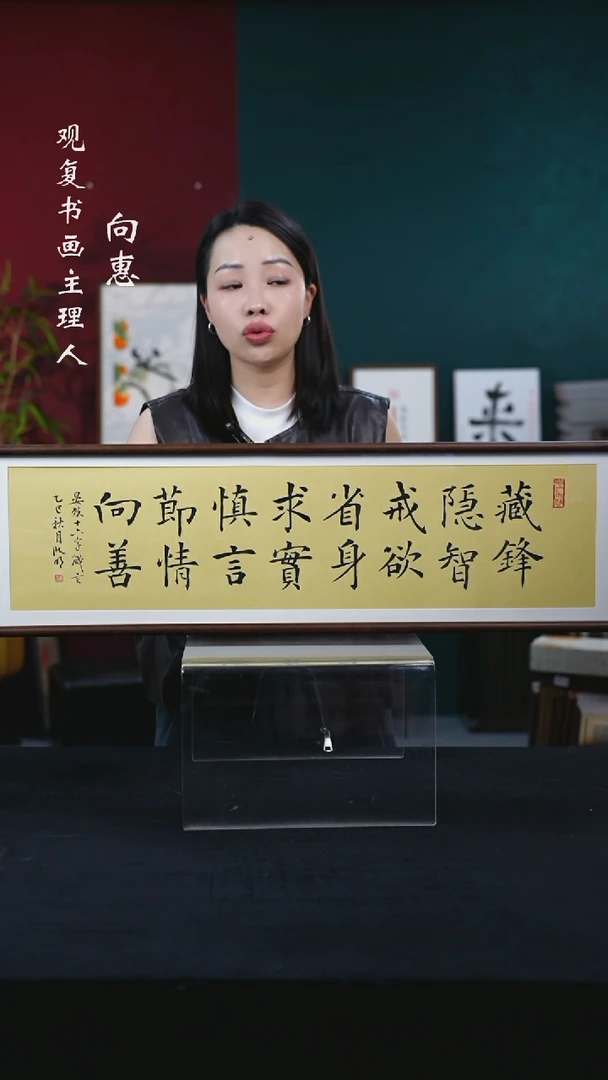 观复书画主理人
向惠
藏鋒
隐智
戒欲
省身
求實
慎言
節情
向善
晏殊十六字箴言
乙巳秋月
来